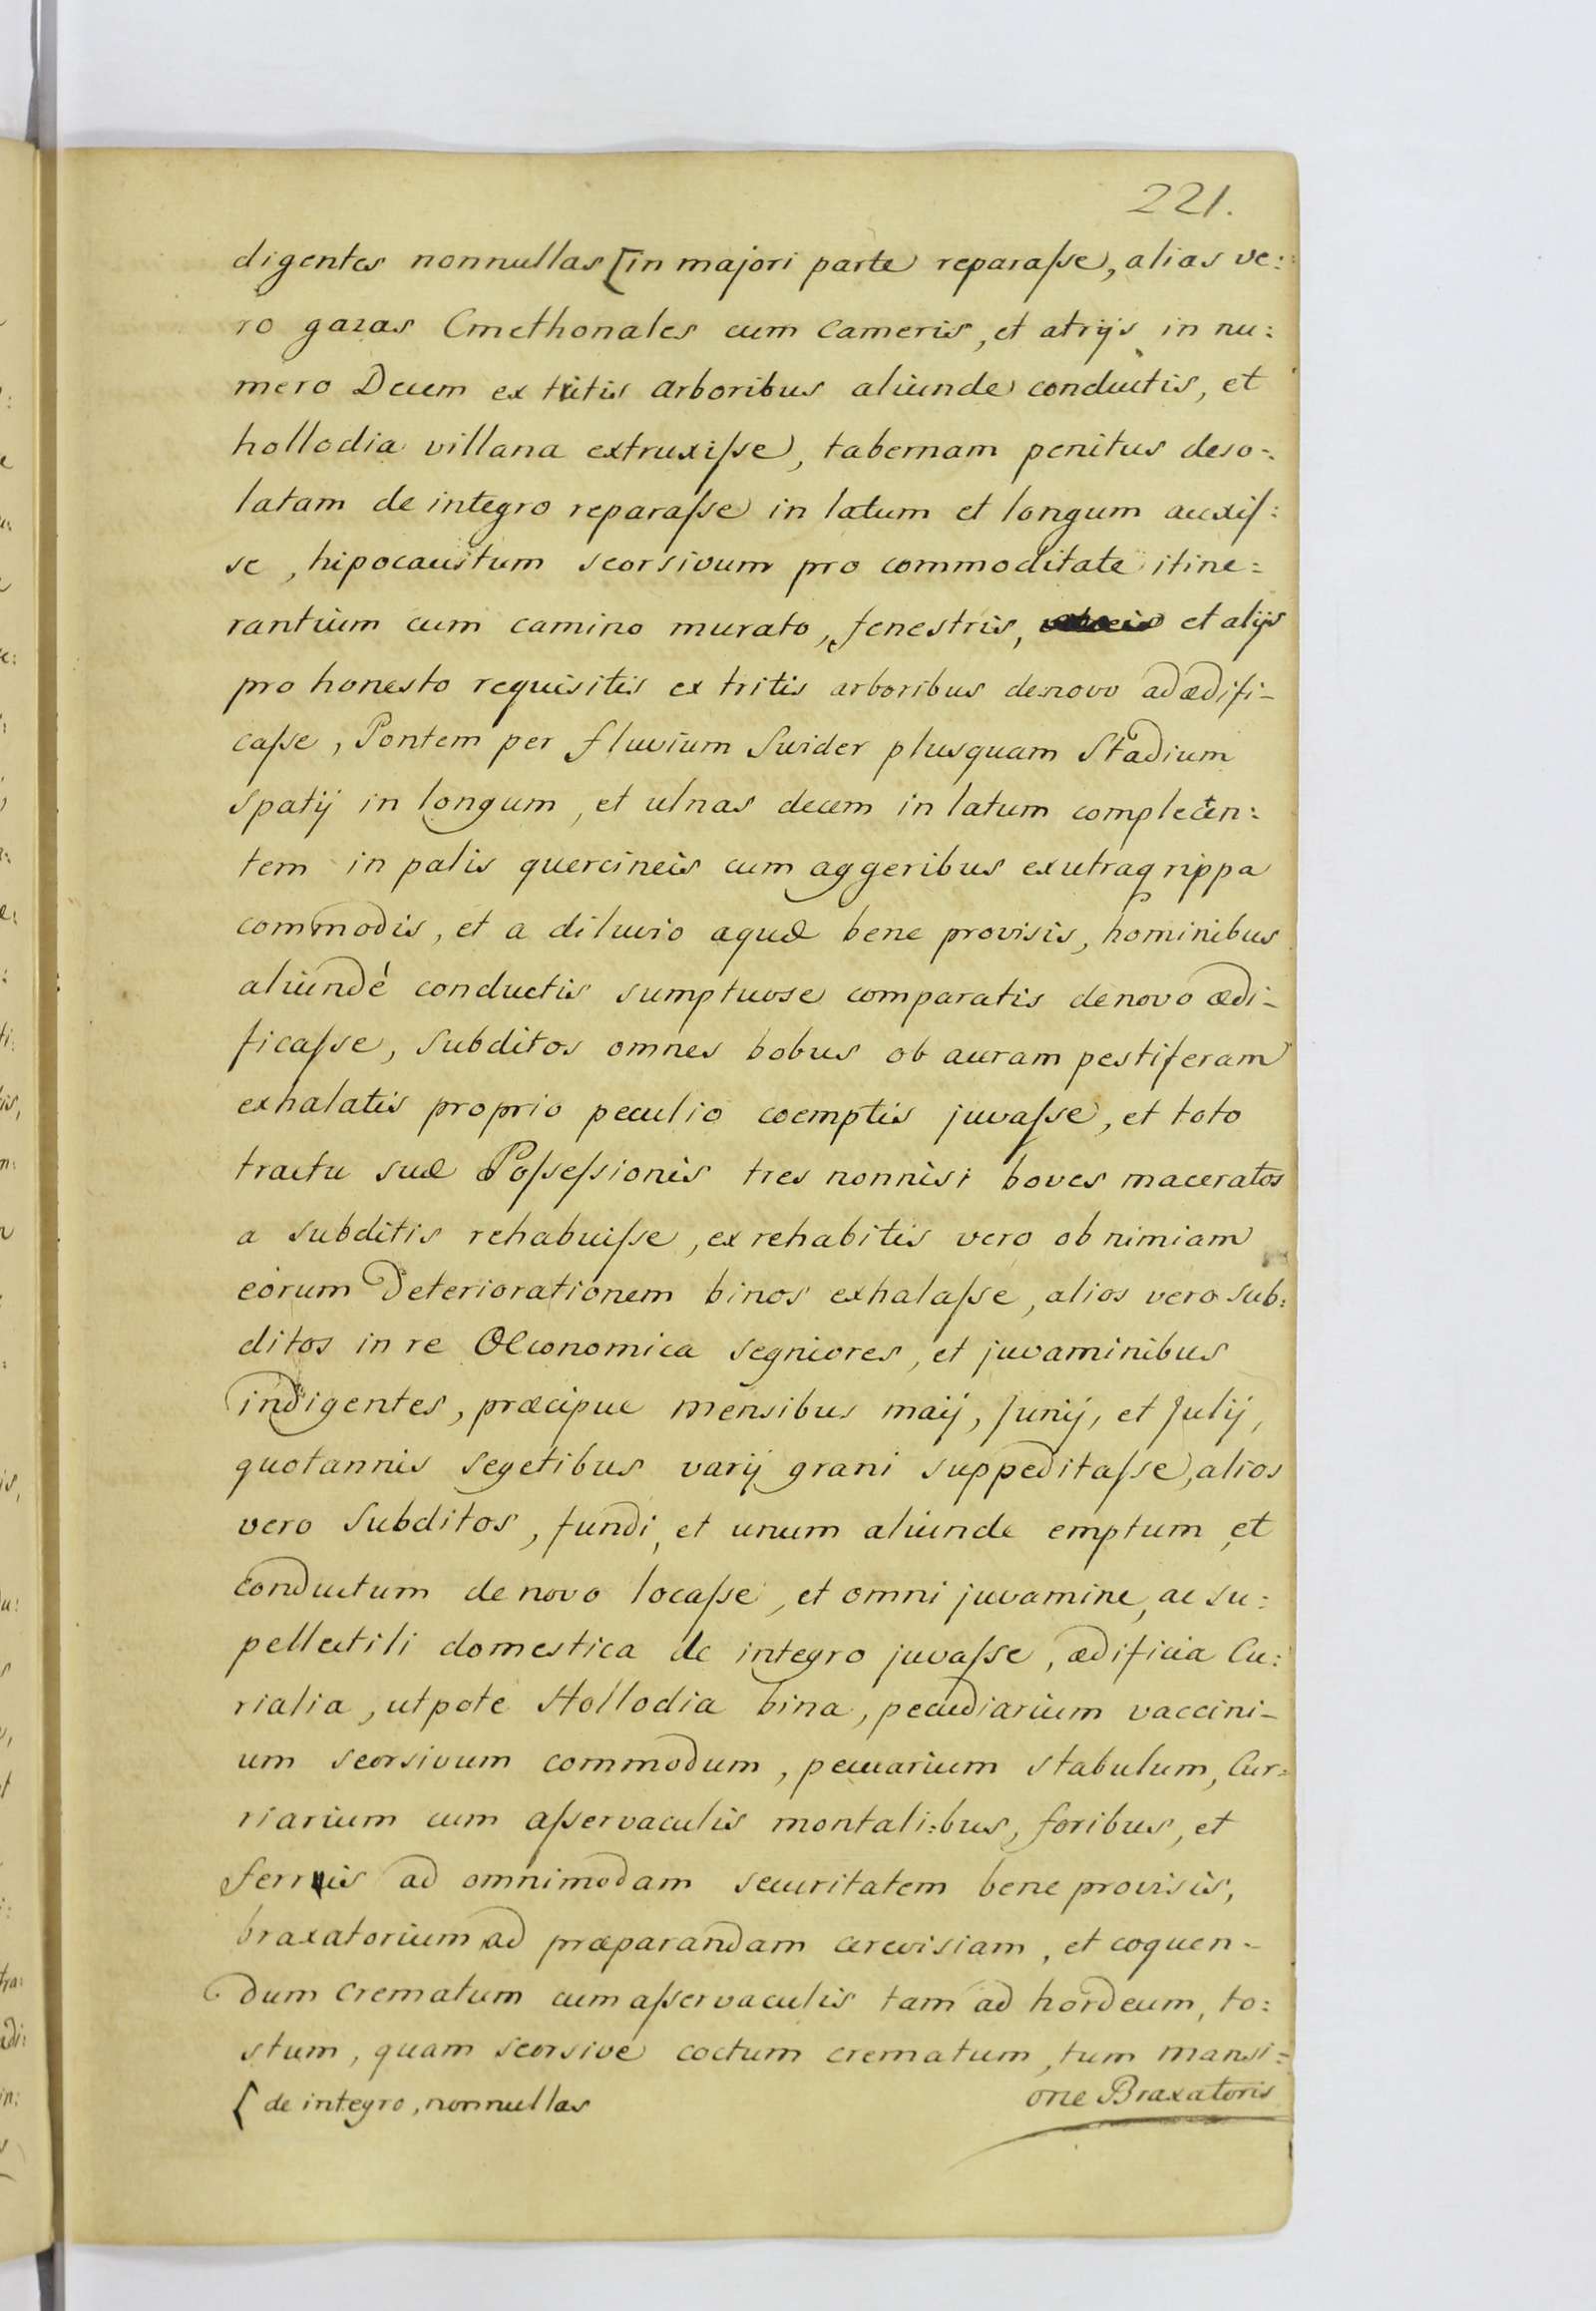 221.
digentes nonnullas [in majori parte reparaſse, alias ve:
ro gazas Cmethonales cum Cameris, et atrijs in nu:
mero Decem ex tritis arboribus aliunde conductis, et
hollodia villana extruxiſse, tabernam penitus deso:
latam de integro reparaſse in latum et longum auxiſ:
se, hipocaustum seorsivum pro commoditate itine:
rantium cum camino murato, fenestris, et alijs
pro honesto requisitis ex tritis arboribus denovo adædifi-
caſse, Pontem per fluvium Swider plusquam Stadium
Spatij in longum, et ulnas decem in latum complecten:
tem in palis quercineis cum aggeribus ex utraq rippa
commodis, et a diluvio aquæ bene provisis, hominibus
aliundé conductis sumptuose comparatis denovo ædi-
ficaſse, Subditos omnes bobus ob auram pestiferam
exhalatis proprio peculio coemptis juvaſse, et toto
tractu suæ Poſseſsionis tres nonnisi boves maceratos
a subditis rehabuiſse, ex rehabitis vero ob nimiam
eorum Deteriorationem binos exhalaſse, alios vero sub:
ditos in re Œconomica segniores, et juvaminibus
indigentes, præcipue mensibus maij, Junij, et Julij,
quotannis segetibus varij grani suppeditaſse, alios
vero Subditos, fundi, et unum aliunde emptum, et
conductum de novo locaſse, et omni juvamine, ac su:
pellectili domestica de integro juvaſse, ædificia Cu:
rialia, utpote Hollodia bina, pecudiarium vaccini-
um seorsivum commodum, pecuarium stabulum, Cur:
riarium cum aſservaculis montali:bus, foribus, et
ferreis ad omnimodam securitatem bene provisis,
braxatorium ad præparandam cerevisiam, et coquen-
dum Crematum cum aſservaculis tam ad hordeum, to:
stum, quam seorsive coctum crematum, tum mansi:
[ de integro, nonnullas
one Braxatoris